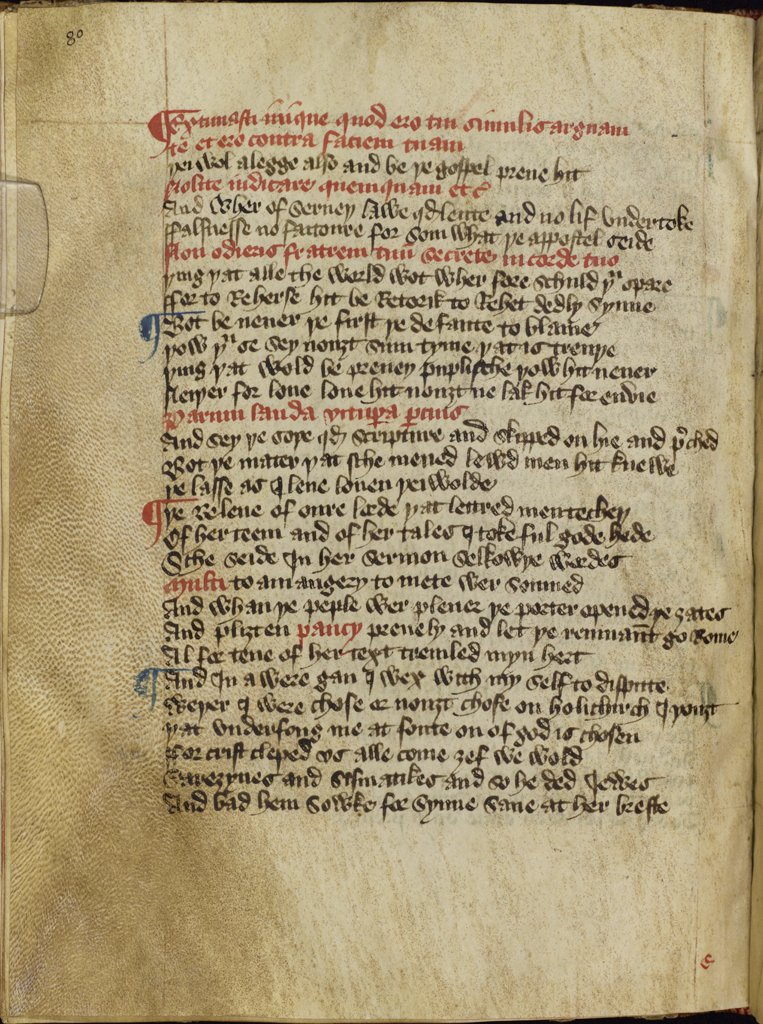 80
Existimasti inique quod ero tui similis arguam
te et ero contra faciem tuam
yei wol alegge also and be ye gospel preue hit
Nolite iudicare quemquam etc
And wher of serueþ lawe qd leute and no lif vndertoke
ffalsnesse no faitoure for som what ye appostel seide
Non odieris fratrem tuu secrete in corde tuo
ying yat alle the world wot wher fore schuld yu spare
ffor to Reherse hit be Retorik to Rehet dedly synne
Bot be neuer ye first ye defaute to blame
yow yu se sey nouzt sum tyme yat is treuye
ying yat wold be preuey puplische yow hit neuer
Neiyer for loue loue hit nouzt ne lak hit for enuie
Parum lauda vitupera parcius
And sey ye soye qd scripture and skipped on hie and preched
Bot ye mater yat sche meued lewd men hit knewe
ye lasse as I leue louen yei wolde
ye Releue of oure lorde yat lettred men techey
Of her teem and of her tales I toke ful gode hede
Sche seide In her sermon selkowye wordes
Multi to a mangery to mete wer somned
And whan ye peple wer plener ye porter opened ye zates
And plizten paucy preuely and let ye remnant go Rome
Al for tene of her text trembled myn hert
And In a were gan I wex with my self to dispute
Weyer I were chose or nouzt chose on holi church I youzt
yat vnderfong me at fonte on of god is chosen
For crist cleped vs alle come zef we wold
Sarezynes and sismatikes and so he ded Iewes
And bad hem sowke for synne saue at her breste